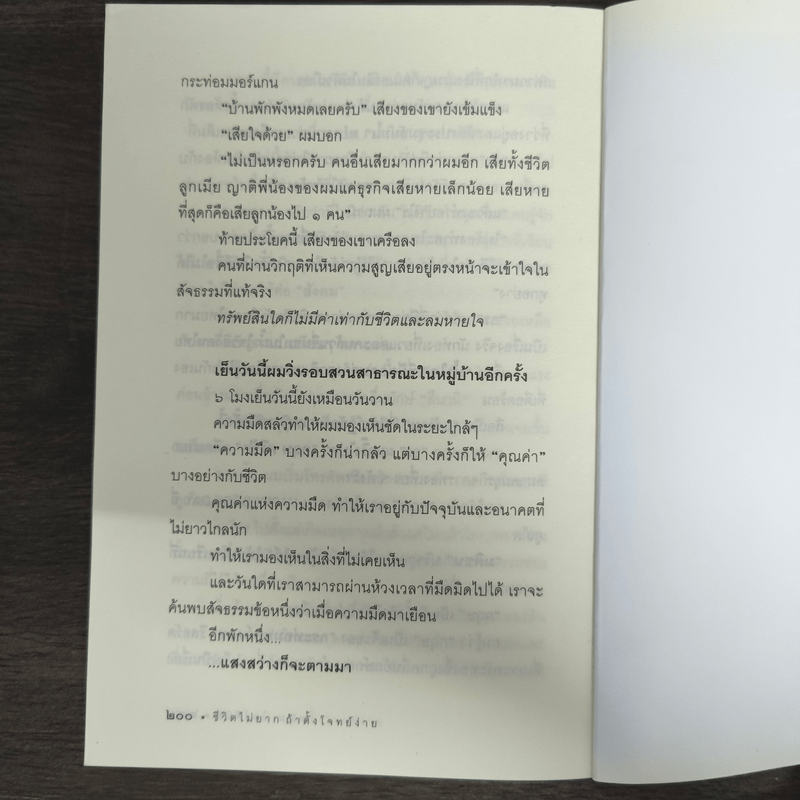 กระท่อมมอร์แกน
“บ้านพักพังหมดเลยครับ” เสียงของเขายังเข้มแข็ง
“เสียใจด้วย” ผมบอก
“ไม่เป็นหรอกครับ คนอื่นเสียมากกว่าผมอีก เสียทั้งชีวิต
ลูกเมีย ญาติพี่น้องของผมแค่ธุรกิจเสียหายเล็กน้อย เสียหาย
ที่สุดก็คือเสียลูกน้องไป ๑ คน”
ท้ายประโยคนี้ เสียงของเขาเครือลง
คนที่ผ่านวิกฤติที่เห็นความสูญเสียอยู่ตรงหน้าจะเข้าใจใน
สัจธรรมที่แท้จริง
ทรัพย์สินใดก็ไม่มีค่าเท่ากับชีวิตและลมหายใจ
เย็นวันนี้ผมวิ่งรอบสวนสาธารณะในหมู่บ้านอีกครั้ง
๖ โมงเย็นวันนี้ยังเหมือนวันวาน
ความมืดสลัวทำให้ผมมองเห็นชัดในระยะใกล้ๆ
“ความมืด” บางครั้งก็น่ากลัว แต่บางครั้งก็ให้ “คุณค่า”
บางอย่างกับชีวิต
คุณค่าแห่งความมืด ทำให้เราอยู่กับปัจจุบันและอนาคตที่
ไม่ยาวไกลนัก
ทำให้เรามองเห็นในสิ่งที่ไม่เคยเห็น
และวันใดที่เราสามารถผ่านห้วงเวลาที่มืดมิดไปได้ เราจะ
ค้นพบสัจธรรมข้อหนึ่งว่าเมื่อความมืดมาเยือน
อีกพักหนึ่ง...
...แสงสว่างก็จะตามมา
๒๐๐ • ชีวิตไม่ยาก ถ้าตั้งโจทย์ง่าย